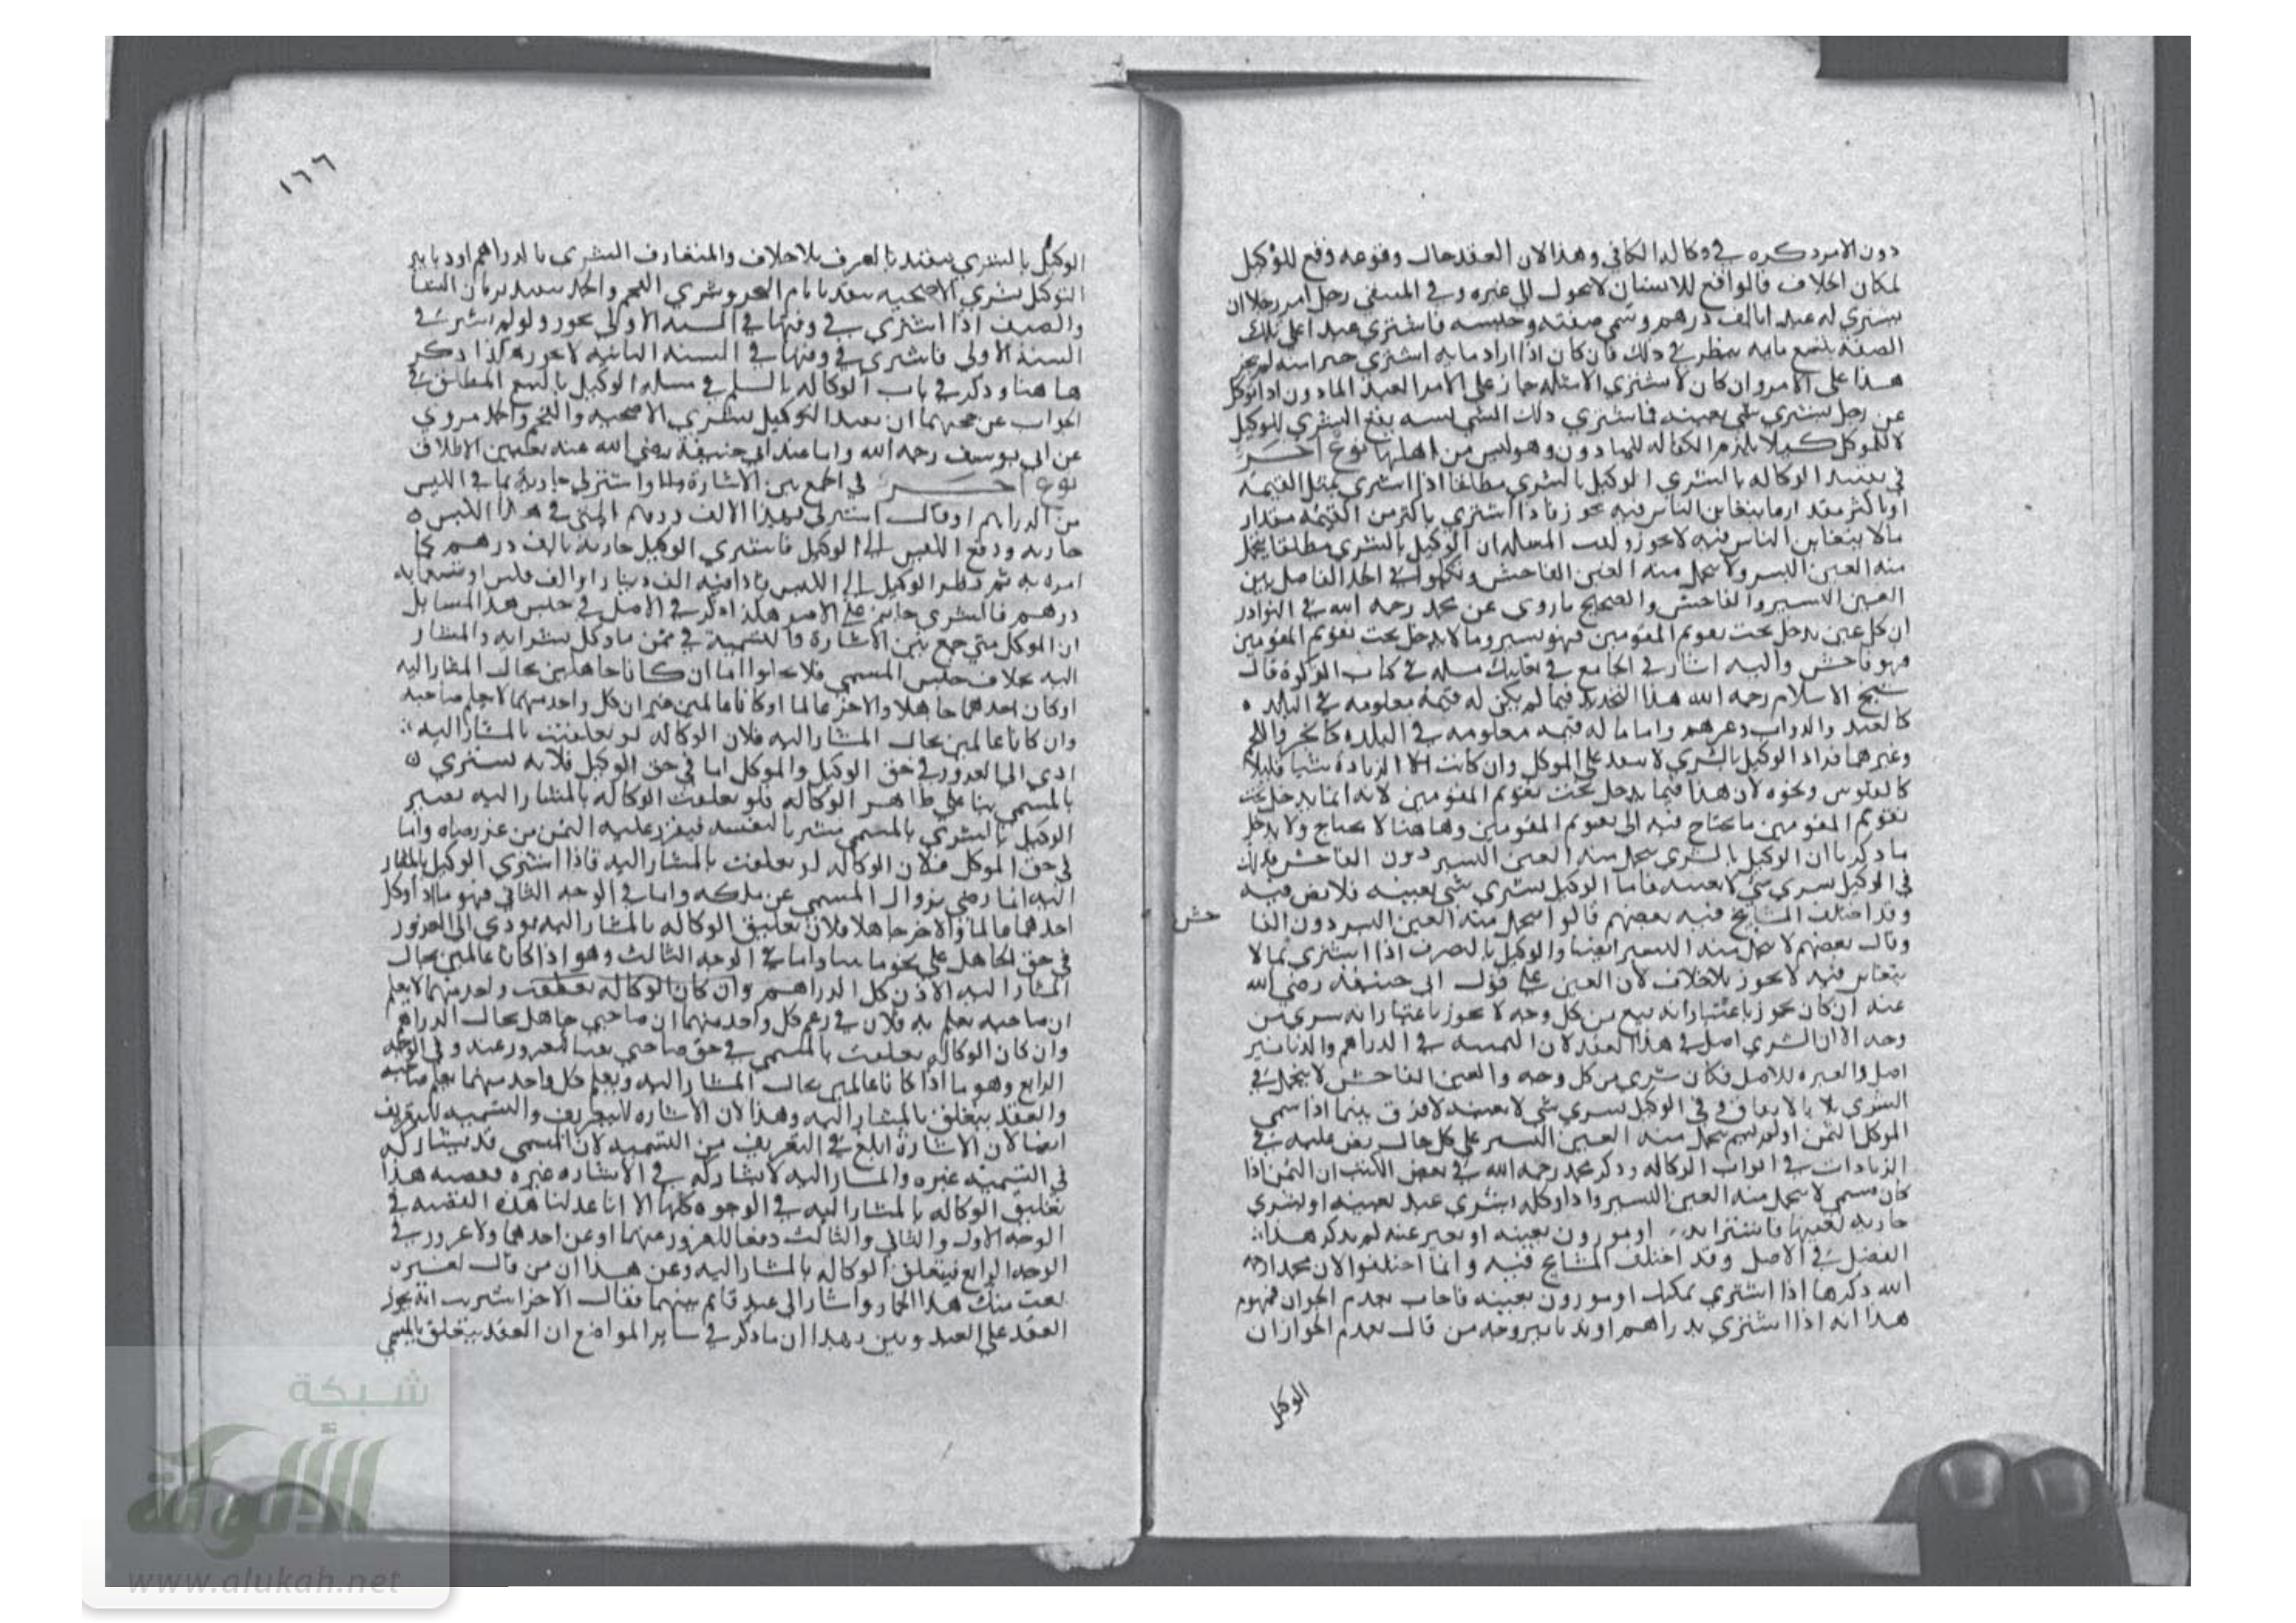 دون الامر ذكره في وكالة الكافي وهذا لان العقد حال وقوعه وقع للوكيل
لمكان الخلاف فالواقع للانسان لا يحول الى غيره وفي المنتقى رجل امر رجلا ان
يشتري له عبدا بالف درهم وسمى صفته وجنسه فاشترى عبدا على تلك
الصفة ينظر في ذلك فان كان اذا اراد ما به اشترى
هذا على الامر وان كان لا يشتري الا مثله جاز على الامر العبد الماذون اذا توكل
عن رجل بشرى شي بعينه فاشترى ذلك الشي يقع الشرى للوكيل
لا للموكل كيلا يلزم الكفالة للماذون وهو ليس من اهلها نوع اخر
في تقييد الوكالة بالشرى الوكيل بالشرى مطلقا اذا اشترى بمثل القيمة
او باكثر مقدار ما يتغابن الناس فيه يجوز فاذا اشترى باكثر من القيمة مقدار
مالا يتغابن الناس فيه لا يجوز المسئلة ان الوكيل بالشرى مطلقا يتحمل
منه الغبن اليسير ولا يتحمل منه الغبن الفاحش وتكلموا في الحد الفاصل بين
الغبن اليسير والفاحش والصحيح ما روى عن محمد رحمه الله في النوادر
ان كل غبن يدخل تحت تقويم المقومين فهو يسير وما لا يدخل تحت تقويم المقومين
فهو فاحش واليه اشار في الجامع في مسئلة في كتاب الزكوة قال
شيخ الاسلام رحمه الله هذا التحديد فيما لم يكن له قيمة معلومة في البلد
كالعبد والدواب وغيرهم واما ما له قيمة معلومة في البلدة كالخبز واللحم
وغيرهما فزاد الوكيل بالشرى لا ينفد على الموكل وان كانت الزيادة شيا قليلا
كالفلوس ونحوه لان هذا فيما يدخل تحت تقويم المقومين لانه انما يدخل تحت
تقويم المقومين ما يحتاج فيه الى تقويم المقومين وها هنا لا يحتاج ولا يدخل
ما ذكرنا ان الوكيل بالشرى يتحمل منه الغبن اليسير دون الفاحش فذلك
في الوكيل بشرى شي لا بعينه فاما الوكيل بشرى شي بعينه فلا نص فيه
وقد اختلف المشايخ فيه بعضهم قالوا يتحمل منه الغبن اليسير دون الفا
حش
وقال بعضهم لا يتحمل منه اليسير ايضا والوكيل بالصرف اذا اشترى بما لا
يتغابن فيه لا يجوز بلا خلاف لان الغبن على قول ابي حنيفة رضي الله
عنه ان كان يجوز باعتبار انه بيع من كل وجه لا يجوز باعتبار انه شرى من
وجه الا ان الشرى اصل في هذا العقد لان الثمنية في الدراهم والدنانير
اصل والعبرة للاصل فكان شرى من كل وجه والغبن الفاحش لا يتحمل في
الشرى بلا بالاتفاق وفي الوكيل بشرى شي لا بعينه لا فرق بينما اذا سمى
الموكل الثمن او لم يسم يتحمل منه الغبن اليسير على كل حال نص عليه في
الزيادات في ابواب الوكالة وذكر محمد رحمه الله في بعض الكتب ان الثمن اذا
كان مسمى لا يتحمل منه الغبن اليسير واذا وكله بشرى عبد بعينه او بشرى
جارية بعينها فاشترا به او موزون بعينه او بغير عينه لم يذكر هذا
الفصل في الاصل وقد اختلف المشايخ فيه وانما اختلفوا لان محمدا رحمه
الله ذكر ها اذا اشترى بمكيل او موزون بعينه فاجاب بعدم الجواز فمفهوم
هذا انه اذا اشترى بدراهم او بدنانير وجه من قال بعدم الجواز ان
الوكيل
١٦٦
الوكيل بالشرى يتقيد بالعرف بلا خلاف والمتعارف الشرى بالدراهم او دنانير
التوكيل بشرى الاضحية يتقيد بايام النحر وشرى الفحم والجمد يتقيد بزمان الشتا
والصيف اذا اشترى في وقتها في السنة الاولى يجوز ولو لم يشتر في
السنة الاولى فاشترى في وقتها في السنة الثانية لا يجوز هكذا ذكر
ها هنا وذكر في باب الوكالة بالسلم في مسئلة الوكيل بالبيع المطلق في
الجواب عن حجتهما ان تقييد التوكيل بشرى الاضحية والفحم والجمد مروي
عن ابي يوسف رحمه الله واما عند ابي حنيفة رضي الله عنه الاطلاق
نوع اخر في الجمع بين الاشارة اشتر لي جارية بما في الكيس
من الدراهم او قال اشتر لي بهذا الالف درهم التي في هذا الكيس
جارية ودفع الكيس الى الوكيل فاشترى الوكيل جارية بالف درهم كما
امره به ثم نظر الوكيل الى الكيس فاذا فيه الف دينار او الف فلس او تسعمائة
درهم فالشرى جايز على الامر هكذا ذكر في الاصل في جنس هذا المسايل
ان الموكل متى جمع بين الاشارة والتسمية في ثمن ما وكل بشرايه والمشار
اليه بخلاف جنس المسمى فلا يخلوا اما ان كانا جاهلين بحال المشار اليه
او كان احدهما جاهلا والاخر عالما او كانا عالمين غير ان كل واحد منهما لا يعلم صاحبه
وان كانا عالمين بحال المشار اليه فلان الوكالة لو تعلقت بالمشار اليه
ادى الى الغرور في حق الوكيل والموكل اما في حق الوكيل فلانه يشتري
بالمسمى بنا على ظاهر الوكالة فلو تعلقت الوكالة بالمشار اليه يصير
الوكيل بالشرى بالمسمى مشتريا لنفسه فيغرر عليه الثمن من غير رضاه واما
في حق الموكل فلان الوكالة لو تعلقت بالمشار اليه فاذا اشترى الوكيل بالمشار
اليه انما رضي بزوال المسمى عن ملكه واما في الوجه الثاني فهو ما اذا كان
احدهما عالما والاخر جاهلا فلان تعليق الوكالة بالمشار اليه يودي الى الغرور
في حق الجاهل على نحو ما بينا واما في الوجه الثالث وهو اذا كانا عالمين بحال
المشار اليه الا ان كل الدراهم وان كان الوكالة تعلقت واحد منهما لا يعلم
ان صاحبه يعلم به فلان في زعم كل واحد منهما ان صاحبي جاهل بحال الدراهم
وان كان الوكالة تعلقت بالمسمى في حق صاحبي نفيا للغرور عنه وفي الوجه
الرابع وهو ما اذا كانا عالمين بحال المشار اليه ويعلم كل واحد منهما بعلم صاحبه
والعقد يتعلق بالمشار اليه وهذا لان الاشارة للتعريف والتسمية للتعريف
ايضا لان الاشارة ابلغ في التعريف من التسمية لان المسمى قد يشاركه
في التسمية غيره والمشار اليه لا يشاركه في الاشارة غيره وقضية هذا
تعليق الوكالة بالمشار اليه في الوجوه كلها الا انا عدلنا هذه القضية في
الوجه الاول والثاني والثالث دفعا للغرور عنهما او عن احدهما ولا غرور في
الوجه الرابع فيتعلق الوكالة بالمشار اليه وعن هذا ان من قال لغيره
بعت منك هذا الحمار واشار الى عبد قايم بينهما فقال الاخر اشتريت انه يجوز
العقد على العبد وتبين بهذا ان ما ذكر في ساير المواضع ان العقد يتعلق بالمسمى
شبكة
الألوكة
www.alukah.net